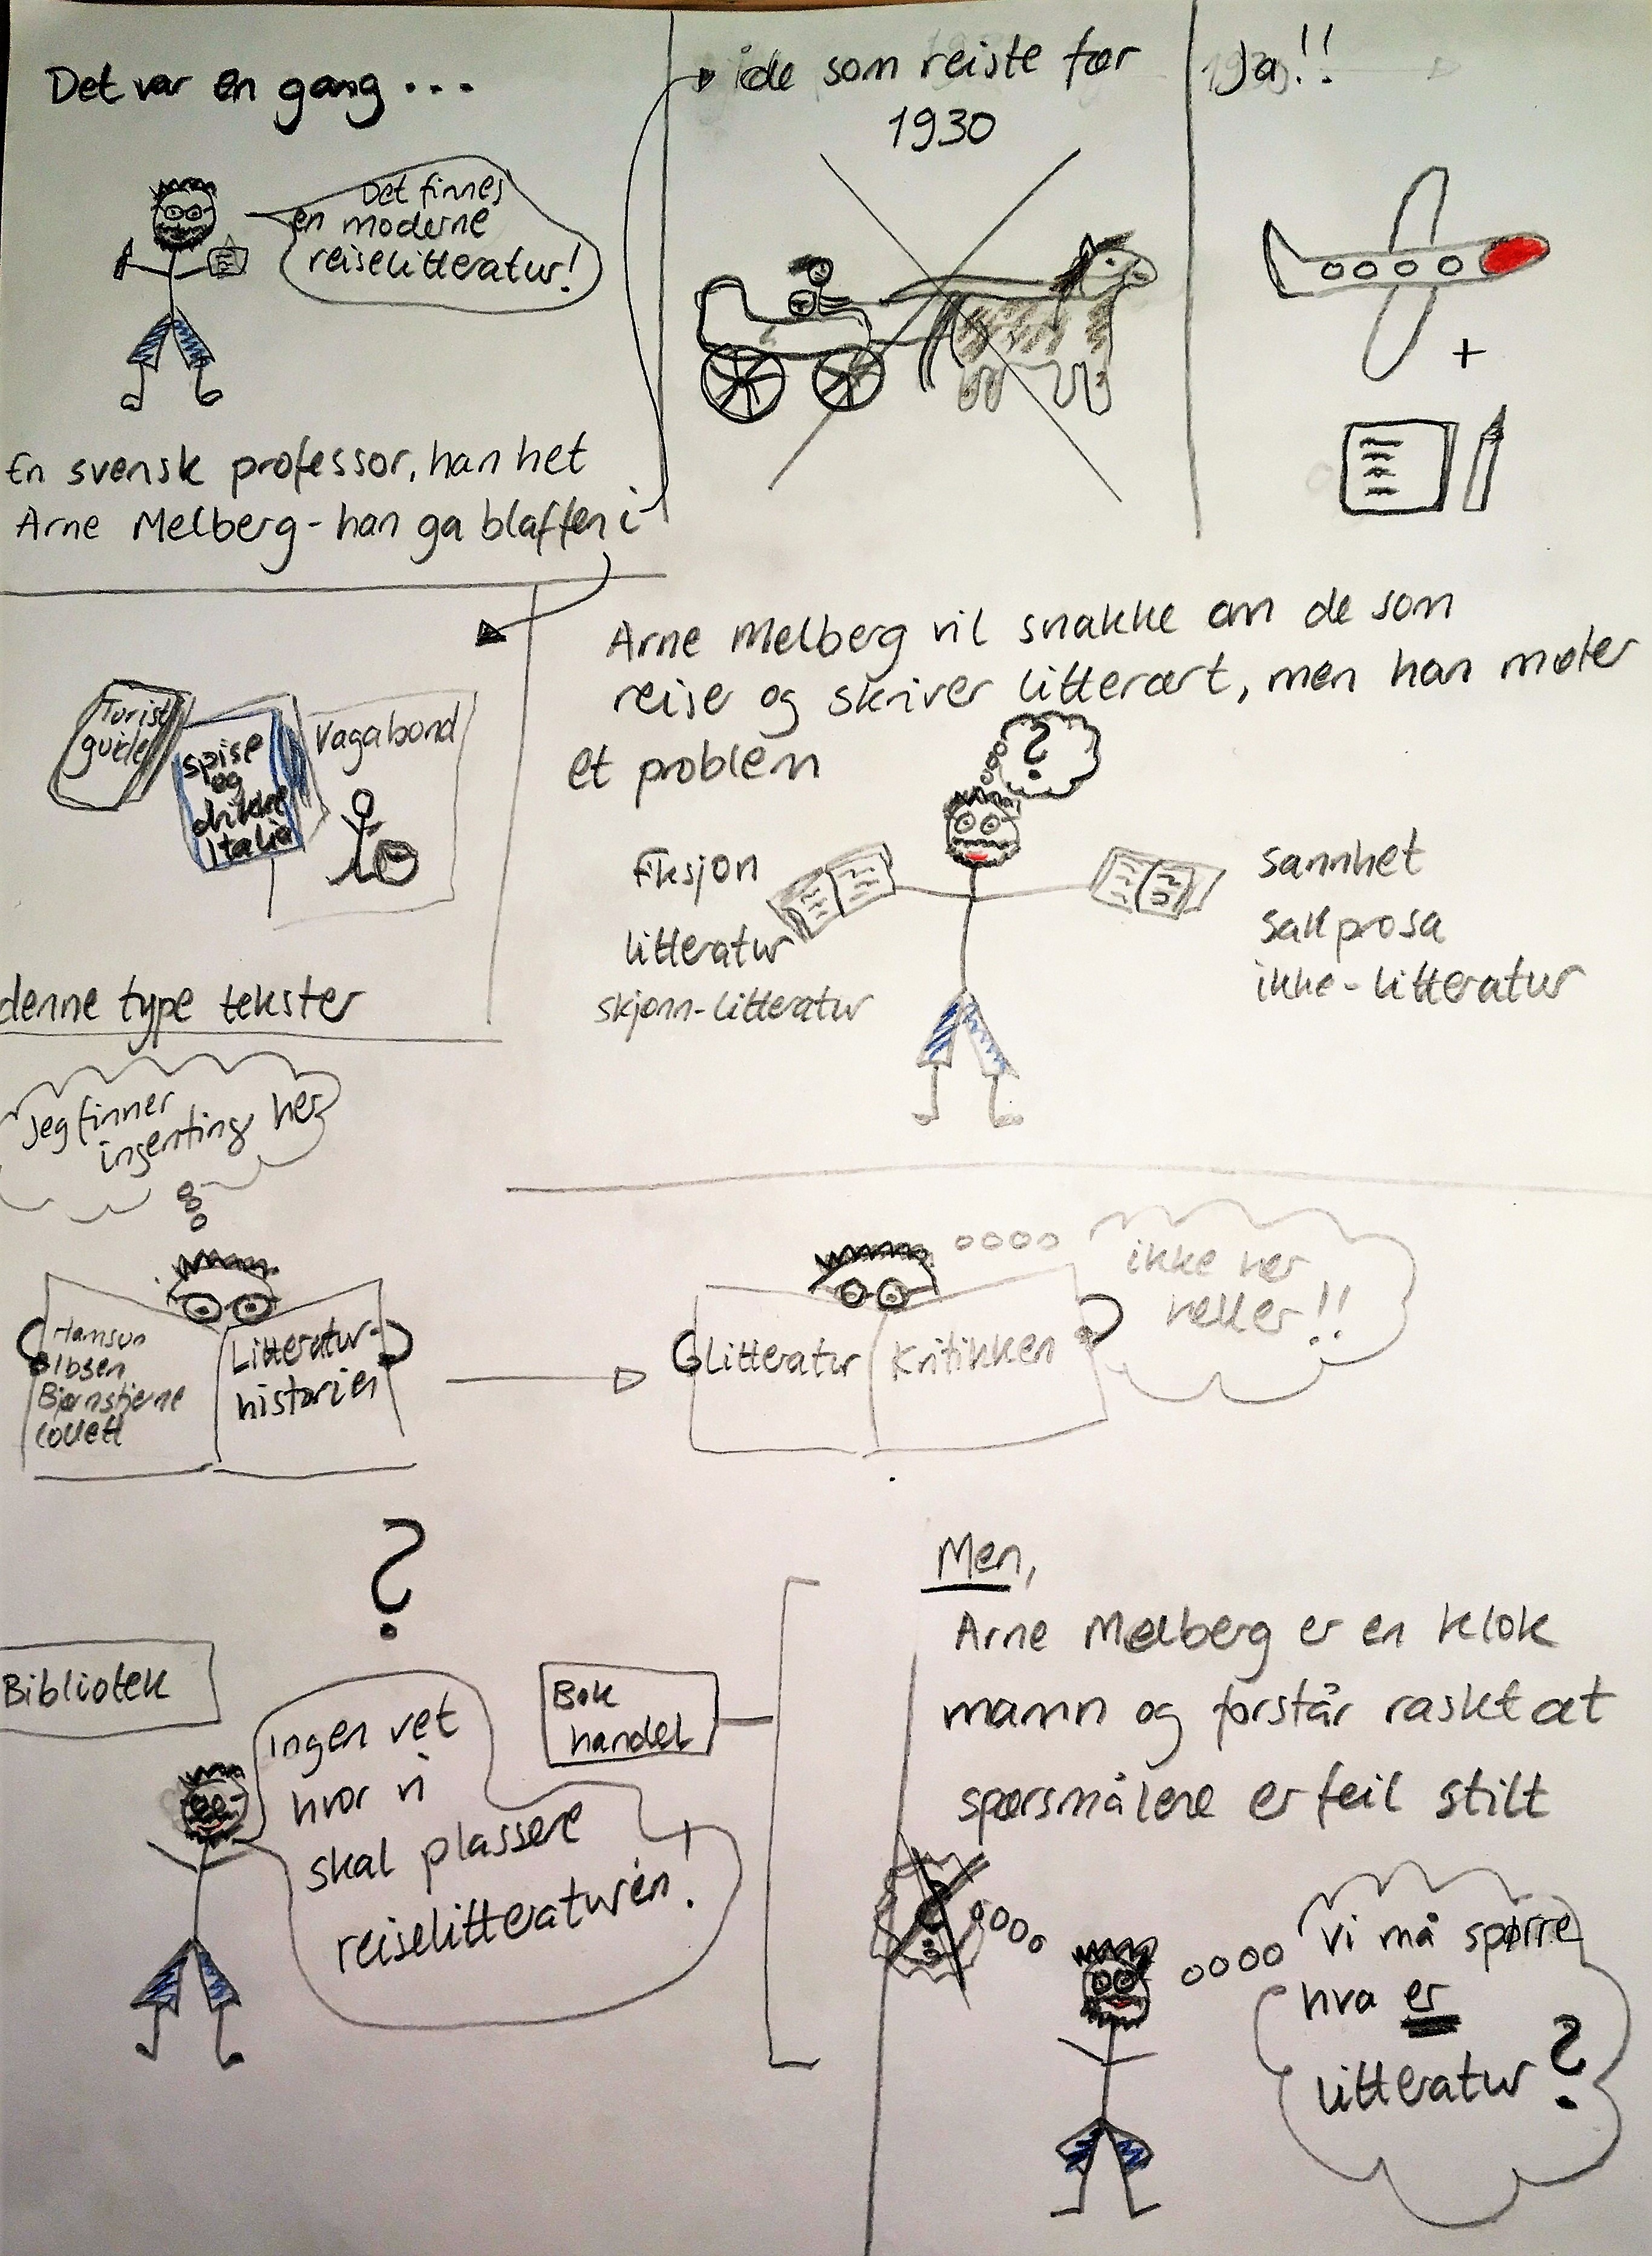 Det var en gang...
Det finnes
en moderne
reiselitteratur!
En svensk professor, han het
Arne Melberg - han ga blaffen i
de som reiste før
1930
Ja!!
+
Turist
guide
spise
og
drikke
Italia
Vagabond
denne type tekster
Arne Melberg vil snakke om de som
reise og skriver litterært, men han møter
et problem
?
Fiksjon
litteratur
skjønn-litteratur
sannhet
sakprosa
ikke-litteratur
Jeg finner
ingenting her
Hamsun
Ibsen
Bjørnstjerne
Collett
Litteratur-
historien
Litteratur
Kritikken
ikke her
heller!!
?
Bibliotek
Ingen vet
hvor vi
skal plassere
reiselitteraturen!
Bok
handel
Men,
Arne Melberg er en klok
mann og forstår raskt at
spørsmålene er feil stilt
vi må spørre
hva er
litteratur?